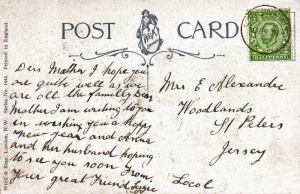 POST CARD
HALFPENNY
Printed in England.
London, N.W. Series No.
Dear Mother I hope you
are quite well as we
are all the family dear
Mother I am writing to you
in wishing you a happy
new year and Anna
and her husband hoping
to see you soon From
your great Friend
Mrs E Alexandre
Woodlands
St Peters
Jersey
Local